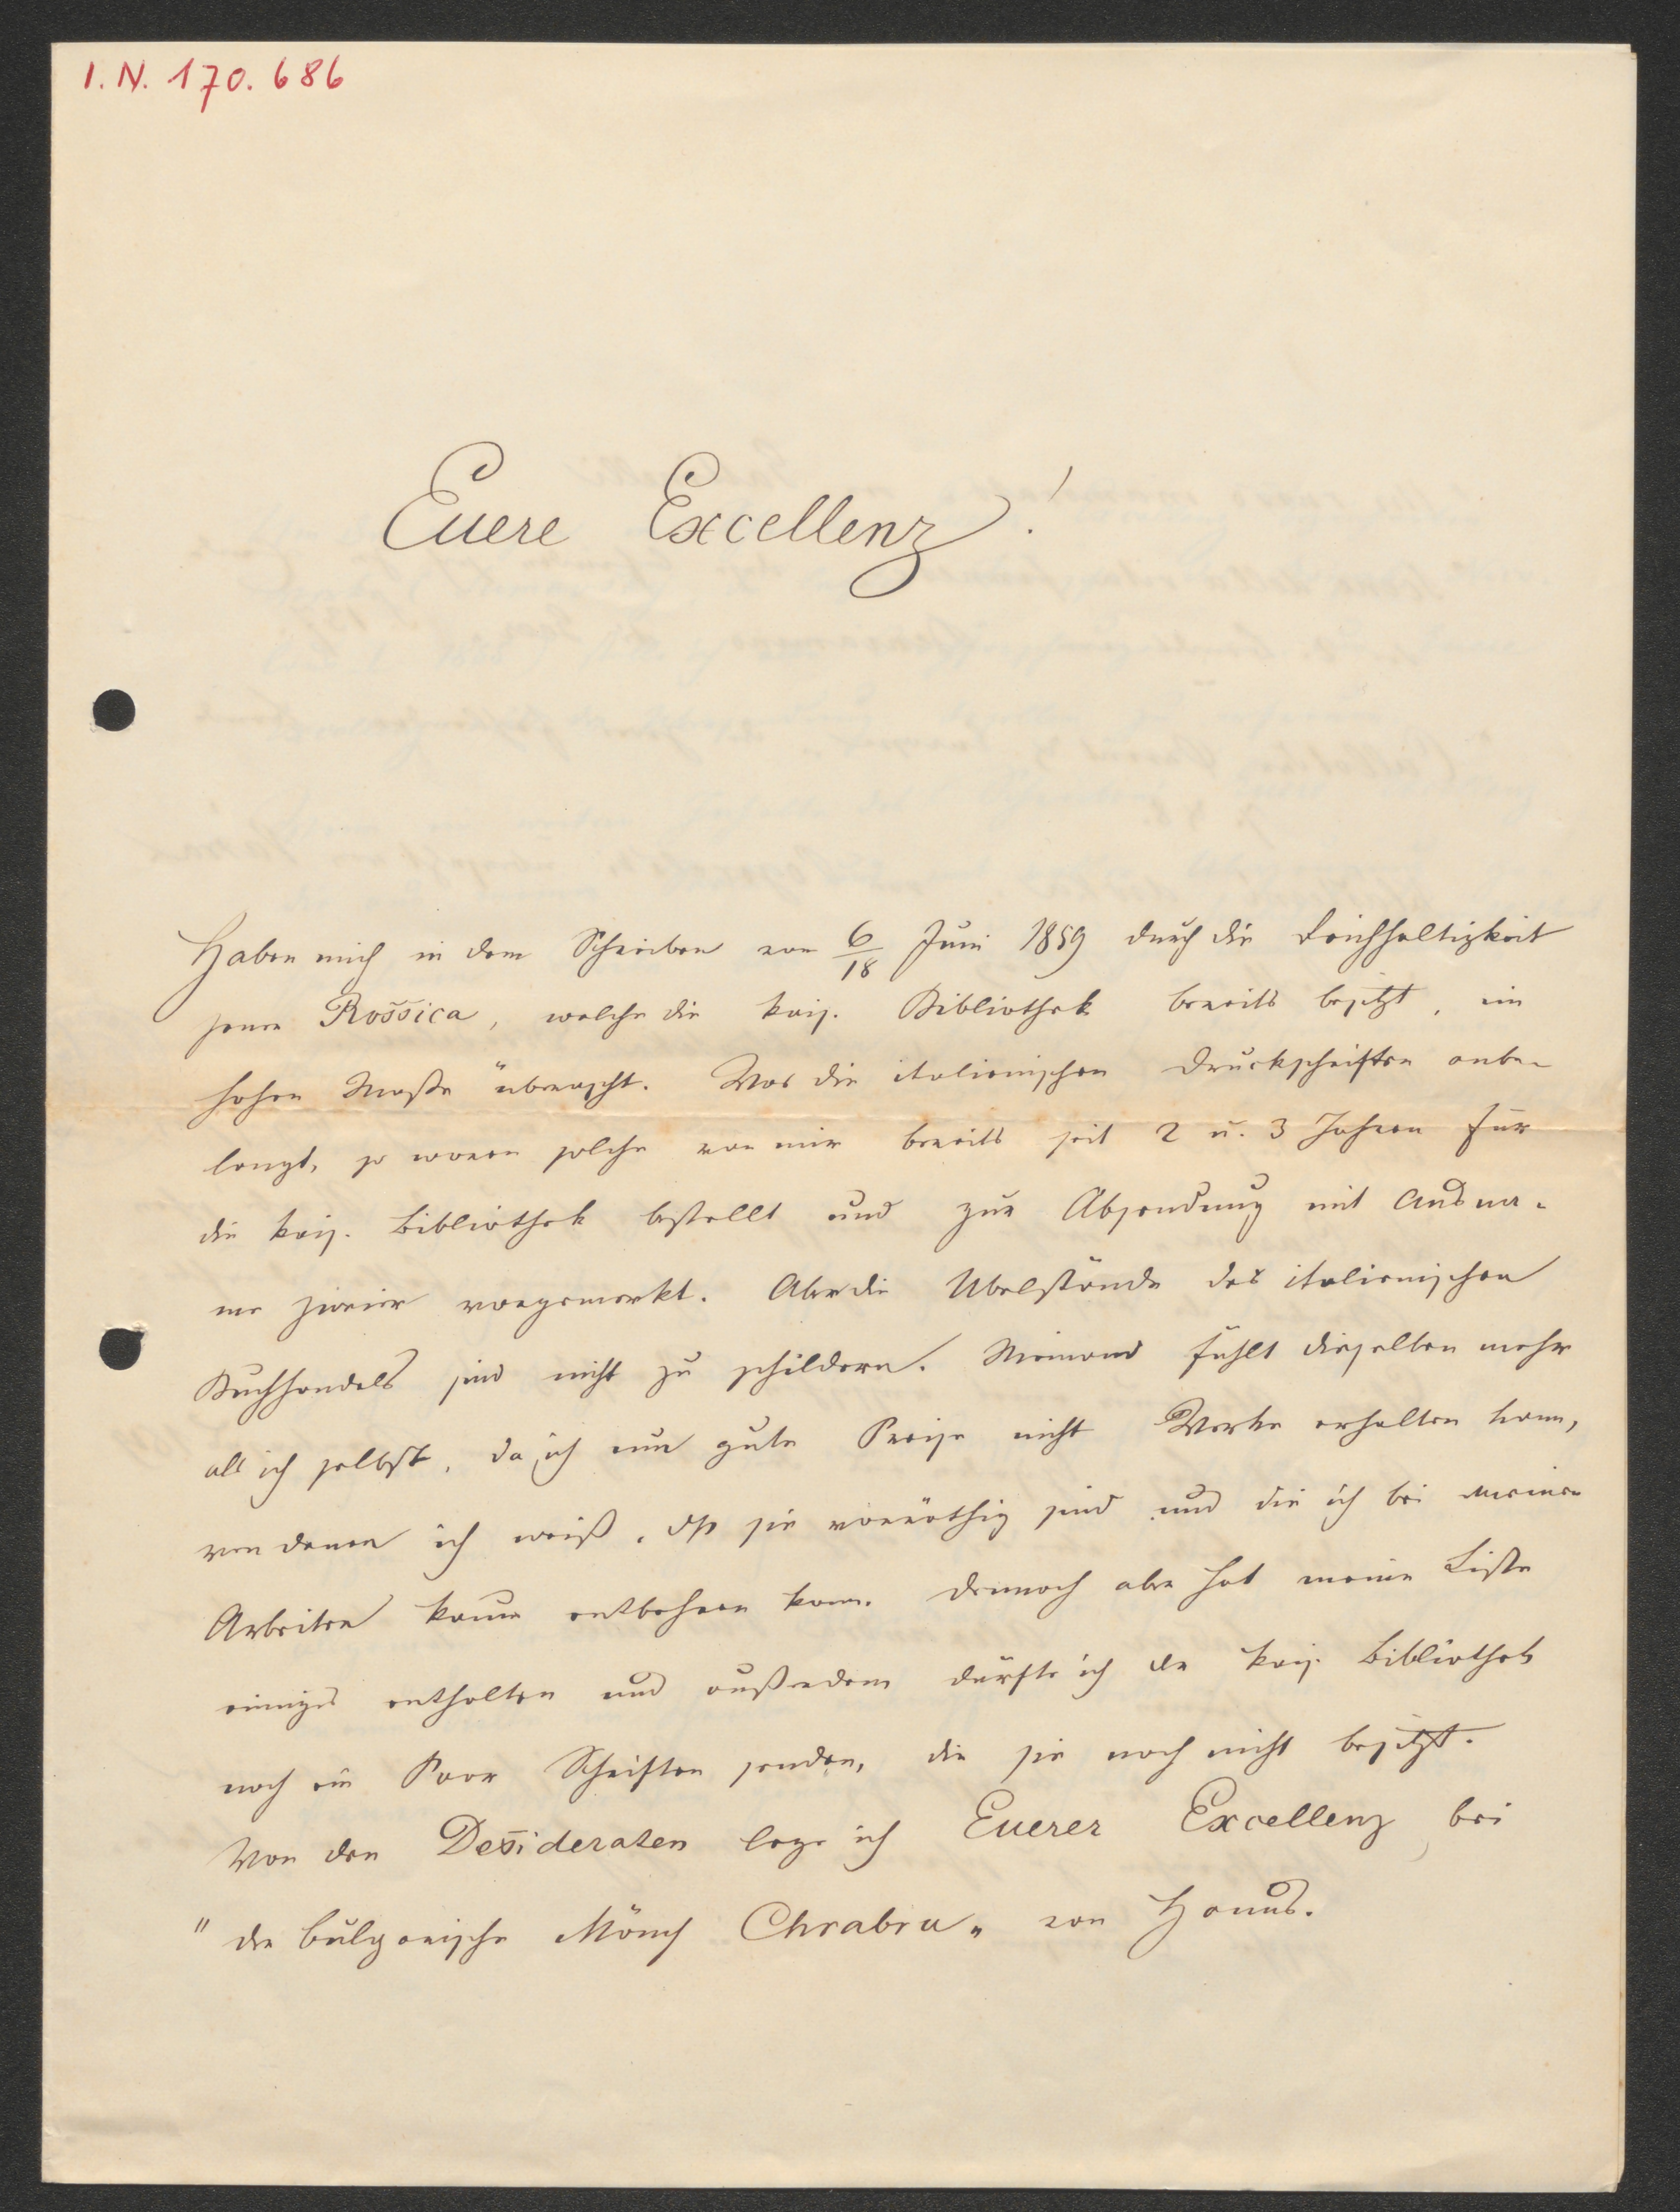 I. N. 170. 686
Euere Excellenz!
Haben mich in dem Schreiben vom 6/18 Juni 1859 durch die Reichhaltigkeit
jener Rossica, welche die kais. Bibliothek bereits besitzt, im
hohen Maße überrascht. Was die italienischen Druckschriften anbe-
langt, so waren solche von mir bereits seit 2 u. 3 Jahren für
die kais. Bibliothek bestellt und zur Absendung mit Ausna-
me zweier vorgemerkt. Aber die Uebelstände des italienischen
Buchhandels sind nicht zu schildern. Niemand fühlt dieselben mehr
als ich selbst, da ich um gute Preise nicht Werke erhalten kann,
von denen ich weiß, dß sie vorräthig sind und die ich bei meinen
Arbeiten kaum entbehren kann. Dennoch aber hat meine Liste
einiges enthalten und außerdem dürfte ich der kais. Bibliothek
noch ein Paar Schriften senden, die sie noch nicht besitzt.
Von den Desideraten lege ich Euerer Excellenz bei
"der bulgarische Mönch Chrabru" von Hanuš.